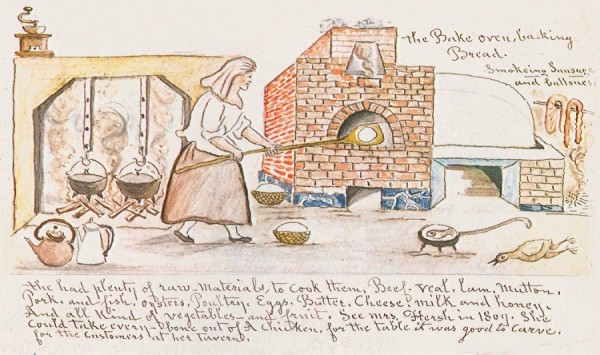 the Bake oven, baking
Bread.
Smokeing Sausage
and balloues.
the had plenty of raw Materials, to Cook them, Beef. Veal. Lam. Mutton.
Pork. and fish. oysters. Poultry. Eggs. Butter. Cheese. milk and honey.
And all Kind of vegetables— and fruit. See mrs. Hersh in 1809. She
Could take every—bone out of A Chicken, for the table it was good to Carve.
for the Customers at her Tavern.